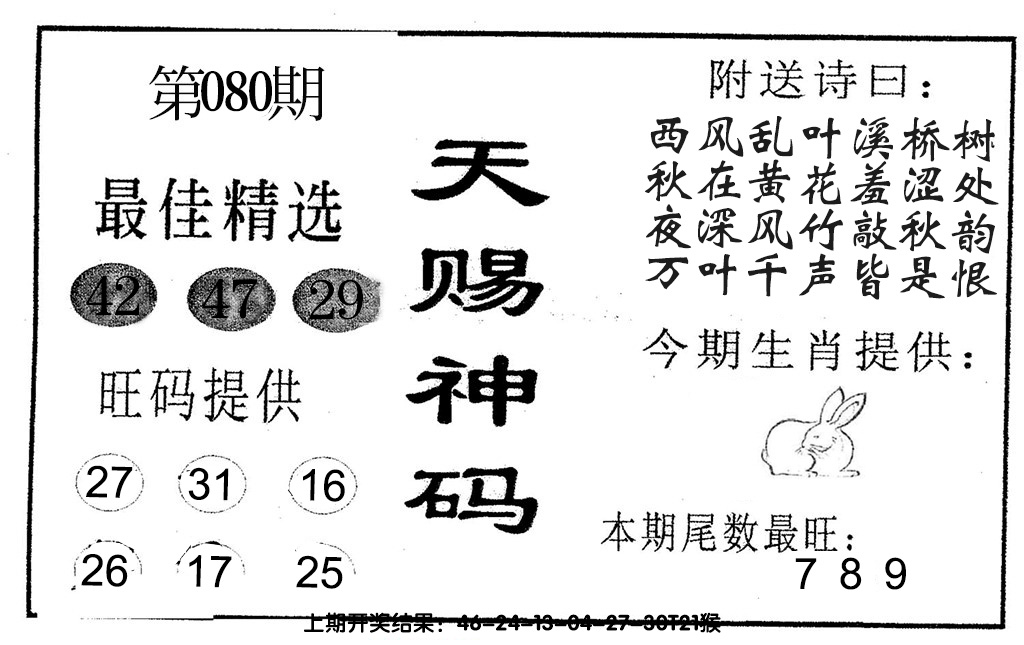 第080期
最佳精选
42 47 29
旺码提供
27 31 16
26 17 25
天赐神码
附送诗曰：
西风乱叶溪桥树
秋在黄花羞涩处
夜深风竹敲秋韵
万叶千声皆是恨
今期生肖提供：
本期尾数最旺：
7 8 9
上期开奖结果：46-24-13-04-27-30T21猴